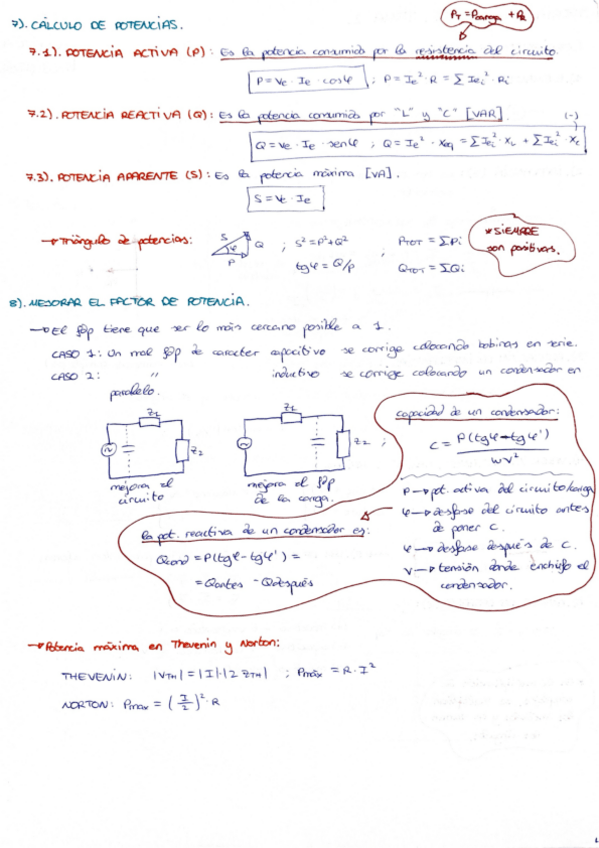 7). CÁLCULO DE POTENCIAS.
P_T = P_carga + P_R
7.1). POTENCIA ACTIVA (P): Es la potencia consumida por la resistencia del circuito.
P = Ve · Ie · cosφ ; P = Ie² · R = Σ Iei² · Ri
7.2). POTENCIA REACTIVA (Q): Es la potencia consumida por "L" y "C" [VAR].
(-)
Q = Ve · Ie · senφ ; Q = Ie² · Xeq = Σ Iei² · XL + Σ Iei² · Xc
7.3). POTENCIA APARENTE (S): Es la potencia máxima [VA].
S = Ve · Ie
→ Triángulo de potencias:
S φ P Q
; S² = P² + Q²
tgφ = Q/P
; PTOT = ΣPi
QTOT = ΣQi
* SIEMPRE
son positivas.
8). MEJORAR EL FACTOR DE POTENCIA.
→ El fdp tiene que ser lo más cercano posible a 1.
CASO 1: Un mal fdp de caracter capacitivo se corrige colocando bobinas en serie.
CASO 2: " inductivo se corrige colocando un condensador en
paralelo.
Z1
Z2
mejora el
circuito
Z1
Z2 ;
mejora el fdp
de la carga.
capacidad de un condensador:
C = P(tgφ - tgφ') / wV²
P → pot. activa del circuito/carga
φ → desfase del circuito antes
de poner C.
φ → desfase después de C.
V → tensión donde enchufo el
condensador.
la pot. reactiva de un condensador es:
Qcond = P(tgφ - tgφ') =
= Qantes - Qdespués
→ Potencia máxima en Thevenin y Norton:
THEVENIN: |VTH| = |I|·|2 ZTH| ; Pmáx = R · I²
NORTON: Pmax = (I/2)² · R